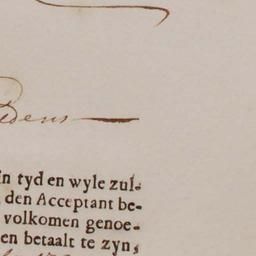 in tyd en wyle zul-
den Acceptant be-
volkomen genoe-
en betaalt te zyn,